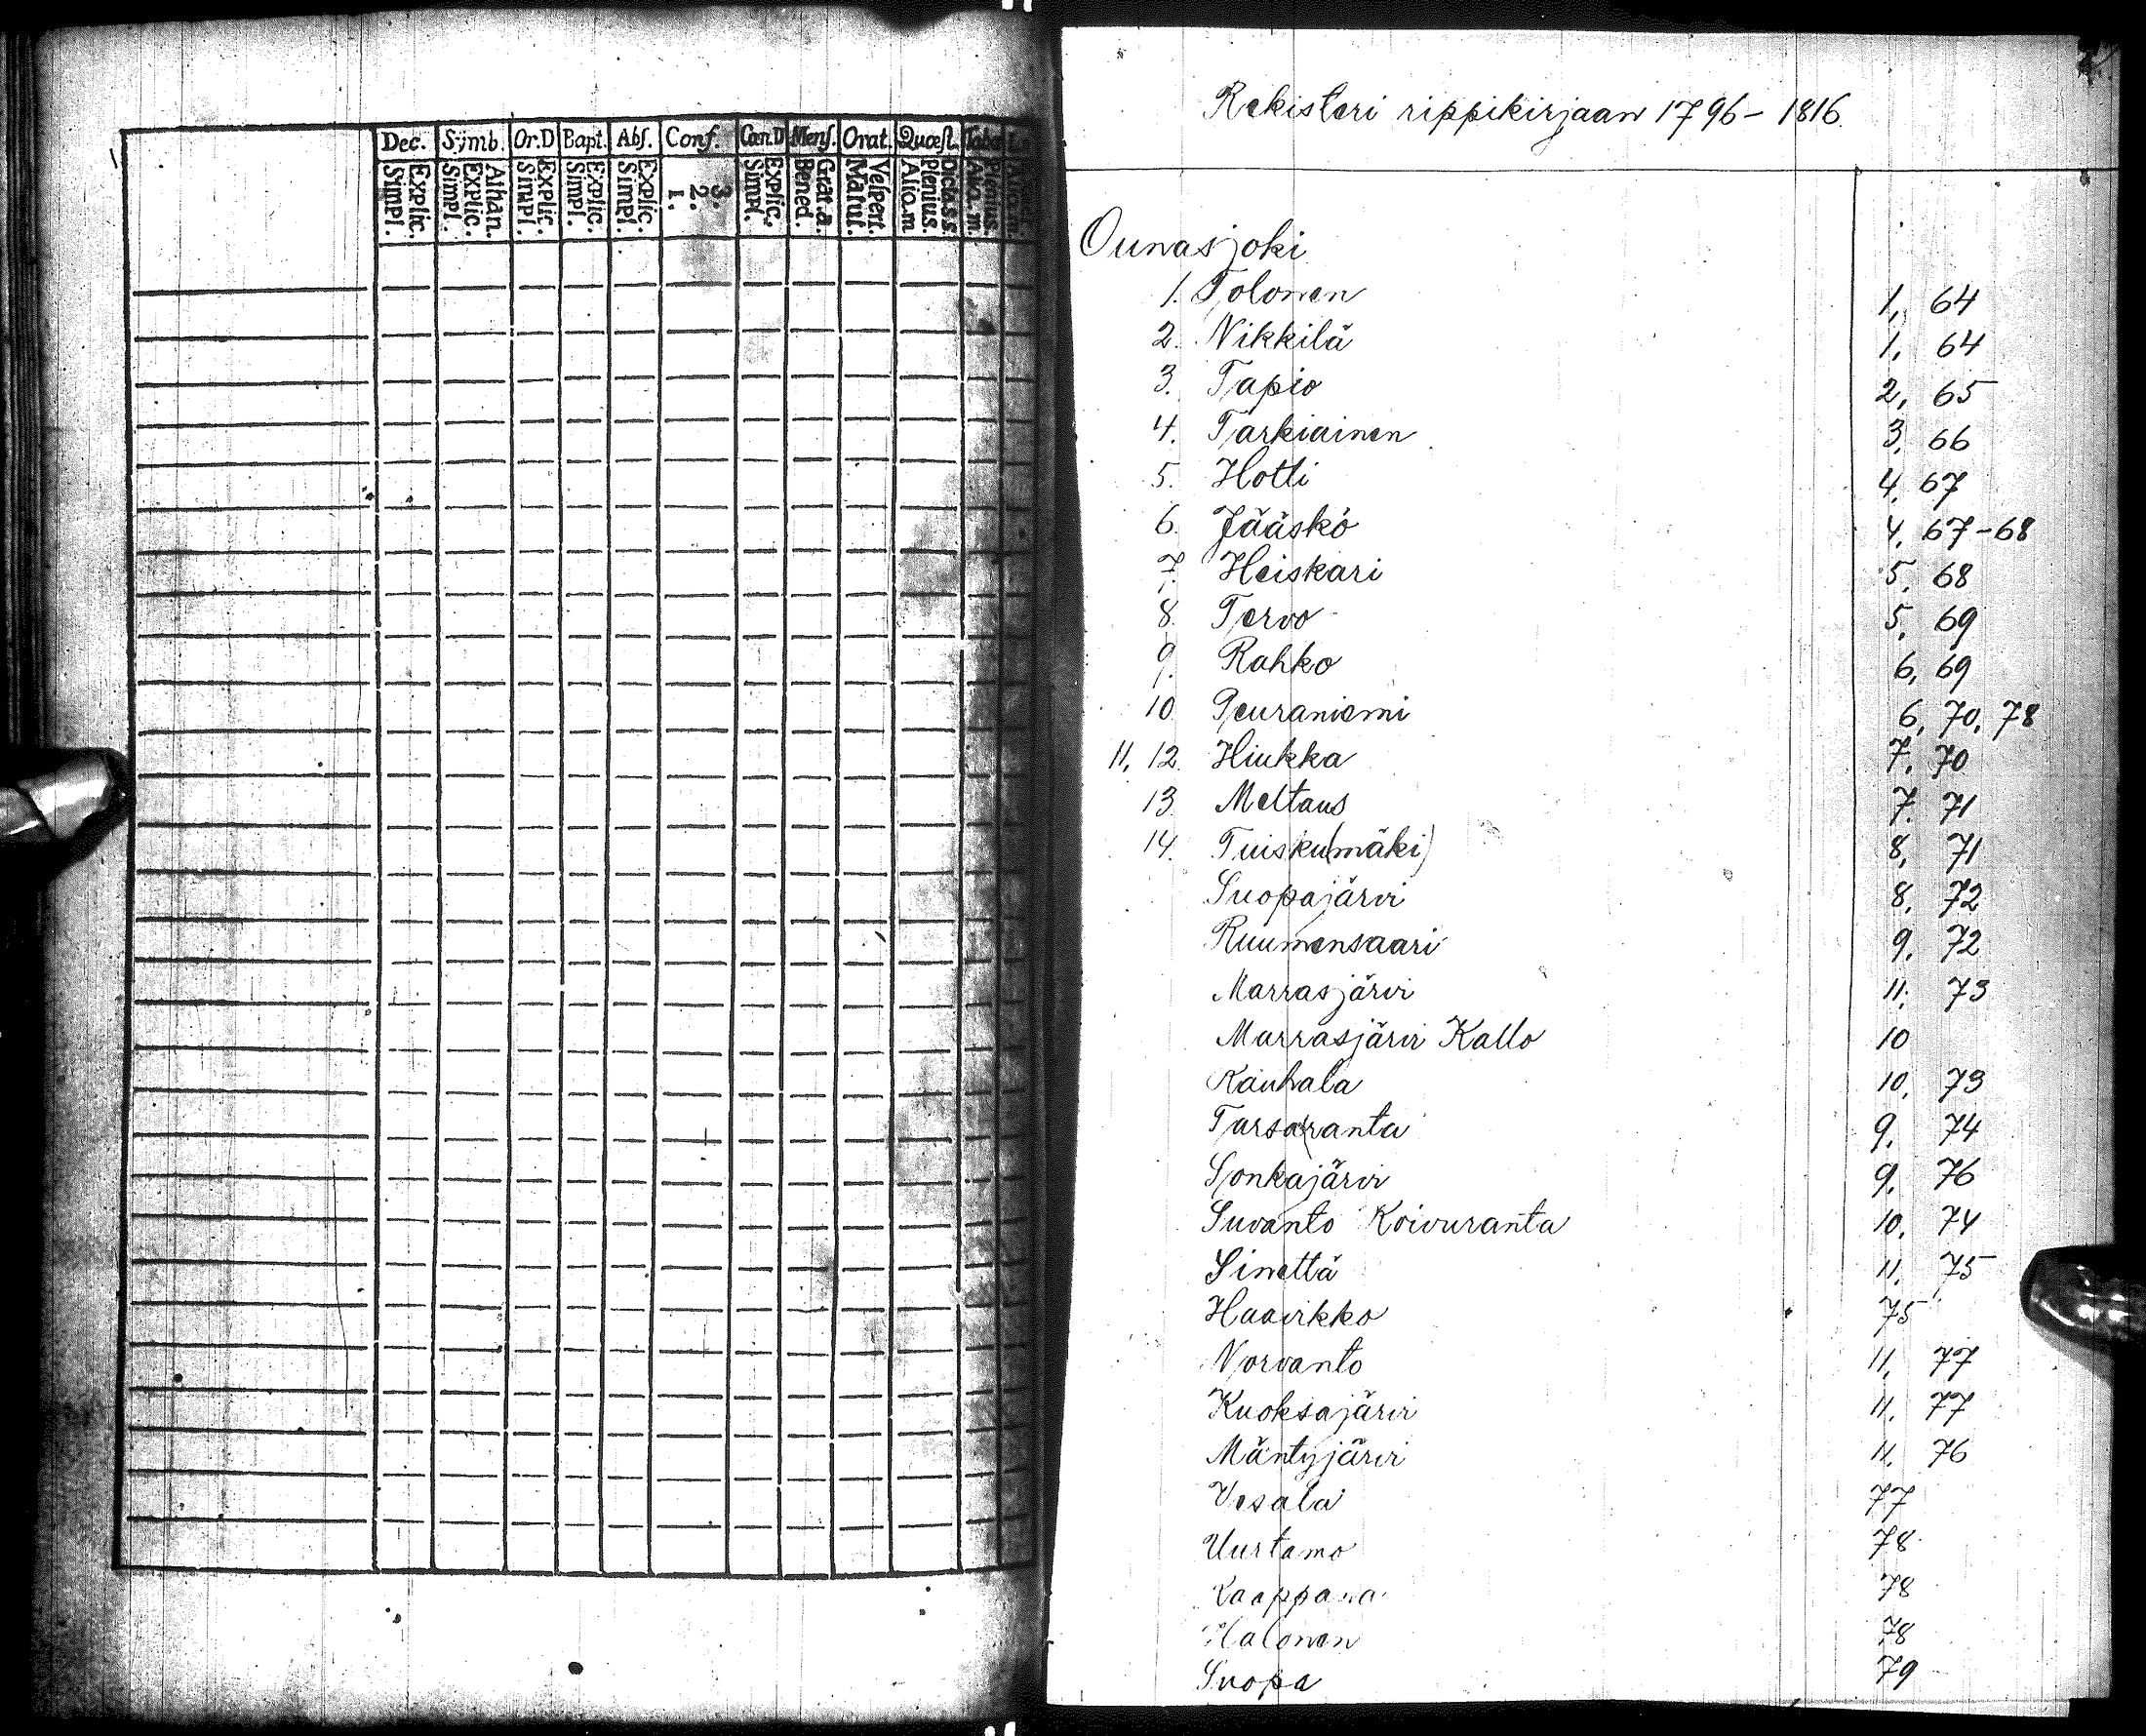 Dec. Symb. Or.D Bapt. Abs. Conf. Cœn.D Mens. Orat. Quæst.
Explic. Simpl. Athan. Explic. Simpl. Explic. Simpl. Explic. Simpl. Explic. Simpl. 3. 2. 1. Explic. Simpl. Grat. a. Bened. Vespert. Matut. Dicta s.s. Plenius. Alio.m Plenius. Alio.m.
Rekisteri rippikirjaan 1796-1816.
Ounasjoki
1. Tolonen 1, 64
2. Nikkilä 1, 64
3. Tapio 2, 65
4. Tarkiainen 3, 66
5. Hotti 4, 67
6. Jääskö 4, 67-68
7. Heiskari 5, 68
8. Tervo 5, 69
9. Rahko 6, 69
10 Peuraniemi 6, 70, 78
11, 12. Hiukka 7, 70
13. Meltaus 7. 71
14. Tuisku(mäki) 8, 71
Suopajärvi 8, 72
Ruumensaari 9, 72
Marrasjärvi 11, 73
Marrasjärvi Kallo 10
Rauhala 10, 73
Tarsaranta 9, 74
Sonkajärvi 9, 76
Suvanto Koivuranta 10, 74
Sinettä 11, 75
Haavikko 75
Norvanto 11, 77
Kuoksajärvi 11, 77
Mäntyjärvi 11, 76
Vesala 77
Uurtamo 78
Kaappana 78
Halonen 78
Suopa 79